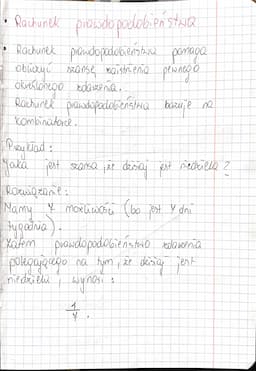 Rachunek prawdopodobieństwa
Rachunek prawdopodobieństwa pomaga
obliczyć szansę zaistnienia pewnego
określonego zdarzenia.
Rachunek prawdopodobieństwa bazuje na
kombinatoryce.
Przykład:
Jaka jest szansa, że dzisiaj jest niedziela?
Rozwiązanie:
Mamy 7 możliwości (bo jest 7 dni
tygodnia).
Zatem prawdopodobieństwo zdarzenia
polegającego na tym, że dzisiaj jest
niedziela, wynosi:
1/7.